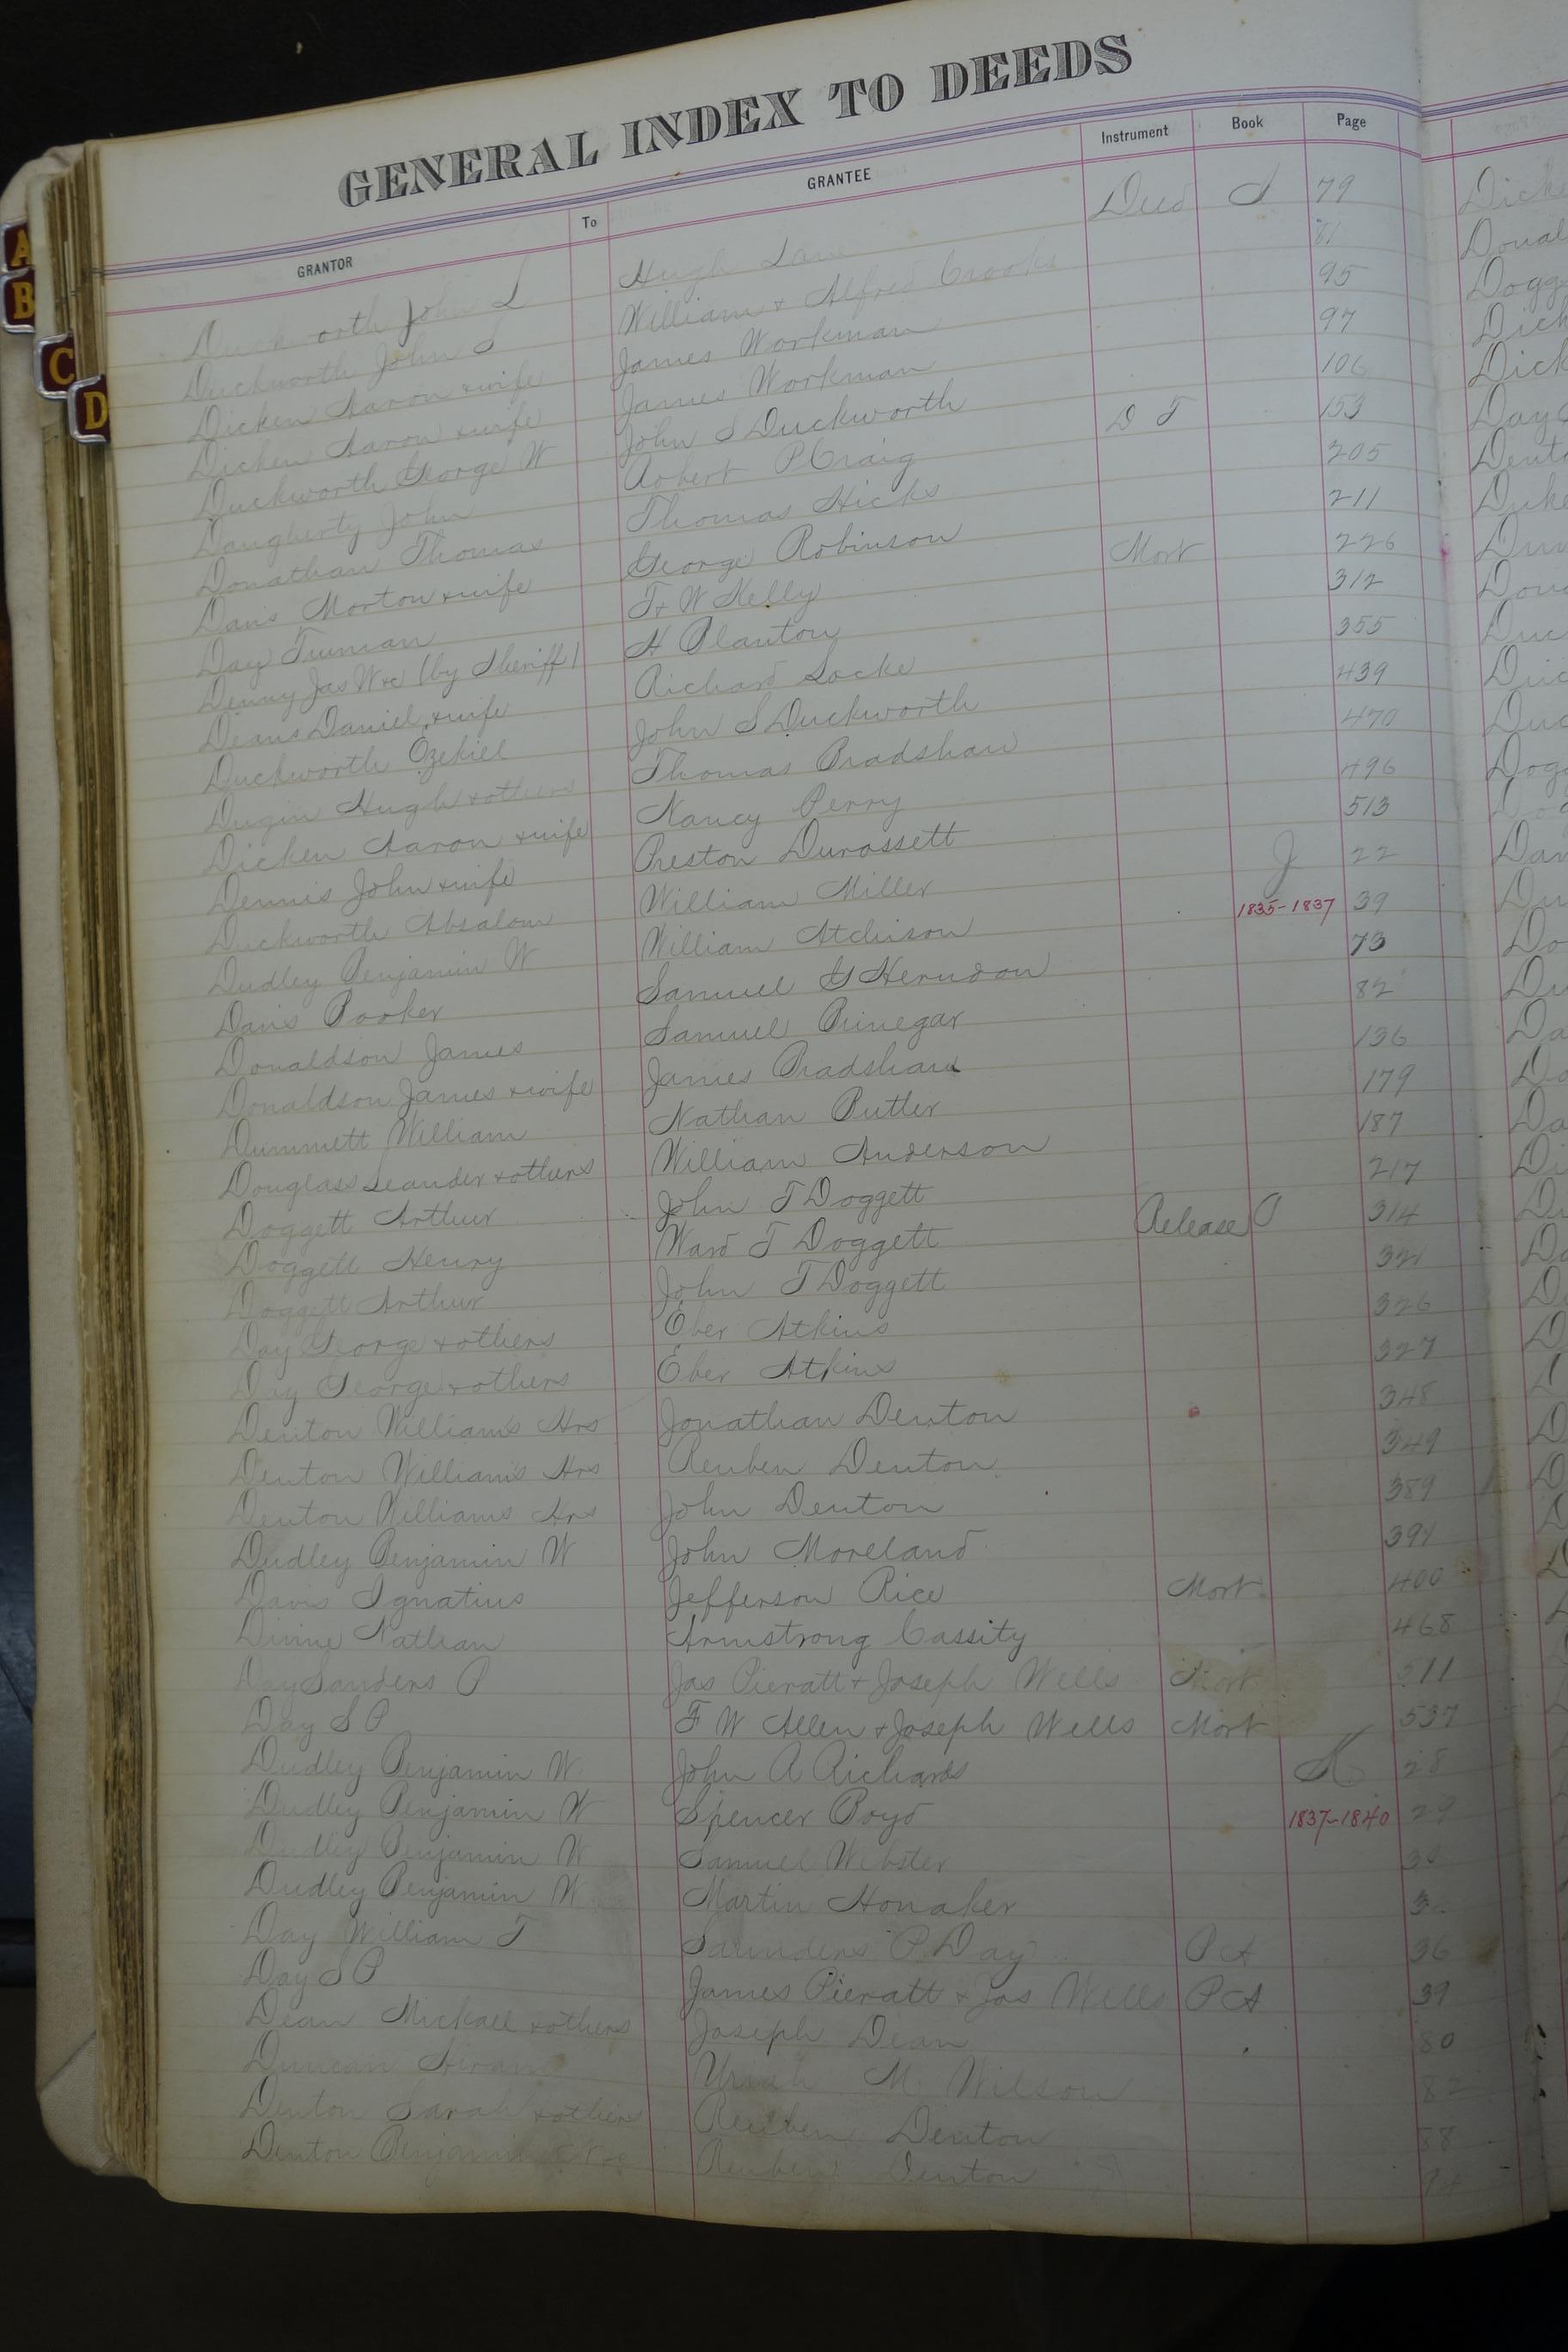 GENERAL INDEX TO DEEDS
GRANTOR To GRANTEE Instrument Book Page
Duckworth John S Hugh Lane Deed I 79
Duckworth John S William & Alfred Crooks 81
Dicken Aaron & wife James Workman 95
Dicken Aaron & wife James Workman 97
Duckworth George W John S Duckworth 106
Daugherty John Robert P Craig D T 153
Donathan Thomas Thomas Hicks 205
Davis Morton & wife George Robinson 211
Day Truman T & W Kelly Mort 226
Denny Jas W &c (by Sheriff) H Blanton 312
Deans Daniel & wife Richard Locke 355
Duckworth Ezekiel John S Duckworth 439
Dugin Hugh & others Thomas Bradshaw 470
Dicken Aaron & wife Nancy Perry 496
Dennis John & wife Preston Durossett 513
Duckworth Absalom William Miller J 22
Dudley Benjamin W William Atchison 1835-1837 39
Davis Booker Samuel G Herndon 73
Donaldson James Samuel Pinegar 82
Donaldson James & wife James Bradshaw 136
Dummett William Nathan Butler 179
Douglass Leander & others William Anderson 187
Doggett Arthur John T Doggett 217
Doggett Henry Ward T Doggett Release P 314
Doggett Arthur John T Doggett 321
Day George & others Eber Atkins 326
Day George & others Eber Atkins 327
Denton William's Hrs Jonathan Denton 348
Denton William's Hrs Reuben Denton 349
Denton William's Hrs John Denton 389
Dudley Benjamin W John Moreland 391
Davis Ignatius Jefferson Rice Mort 400
Divine Nathan Armstrong Cassity 468
Day Sanders P Jas Pieratt & Joseph Wells Mort 511
Day S P F W Allen & Joseph Wells Mort 537
Dudley Benjamin W John A Richards K 28
Dudley Benjamin W Spencer Boyd 1837-1840 29
Dudley Benjamin W Samuel Webster 30
Dudley Benjamin W Martin Honaker
Day William T Saunders P Day P A 36
Day S P James Pieratt & Jos Wells P A 39
Dean Mickael & others Joseph Dean 80
Duncan Hiram Uriah M Wilson 82
Denton Sarah & others Reuben Denton 88
Denton Benjamin Reuben Denton